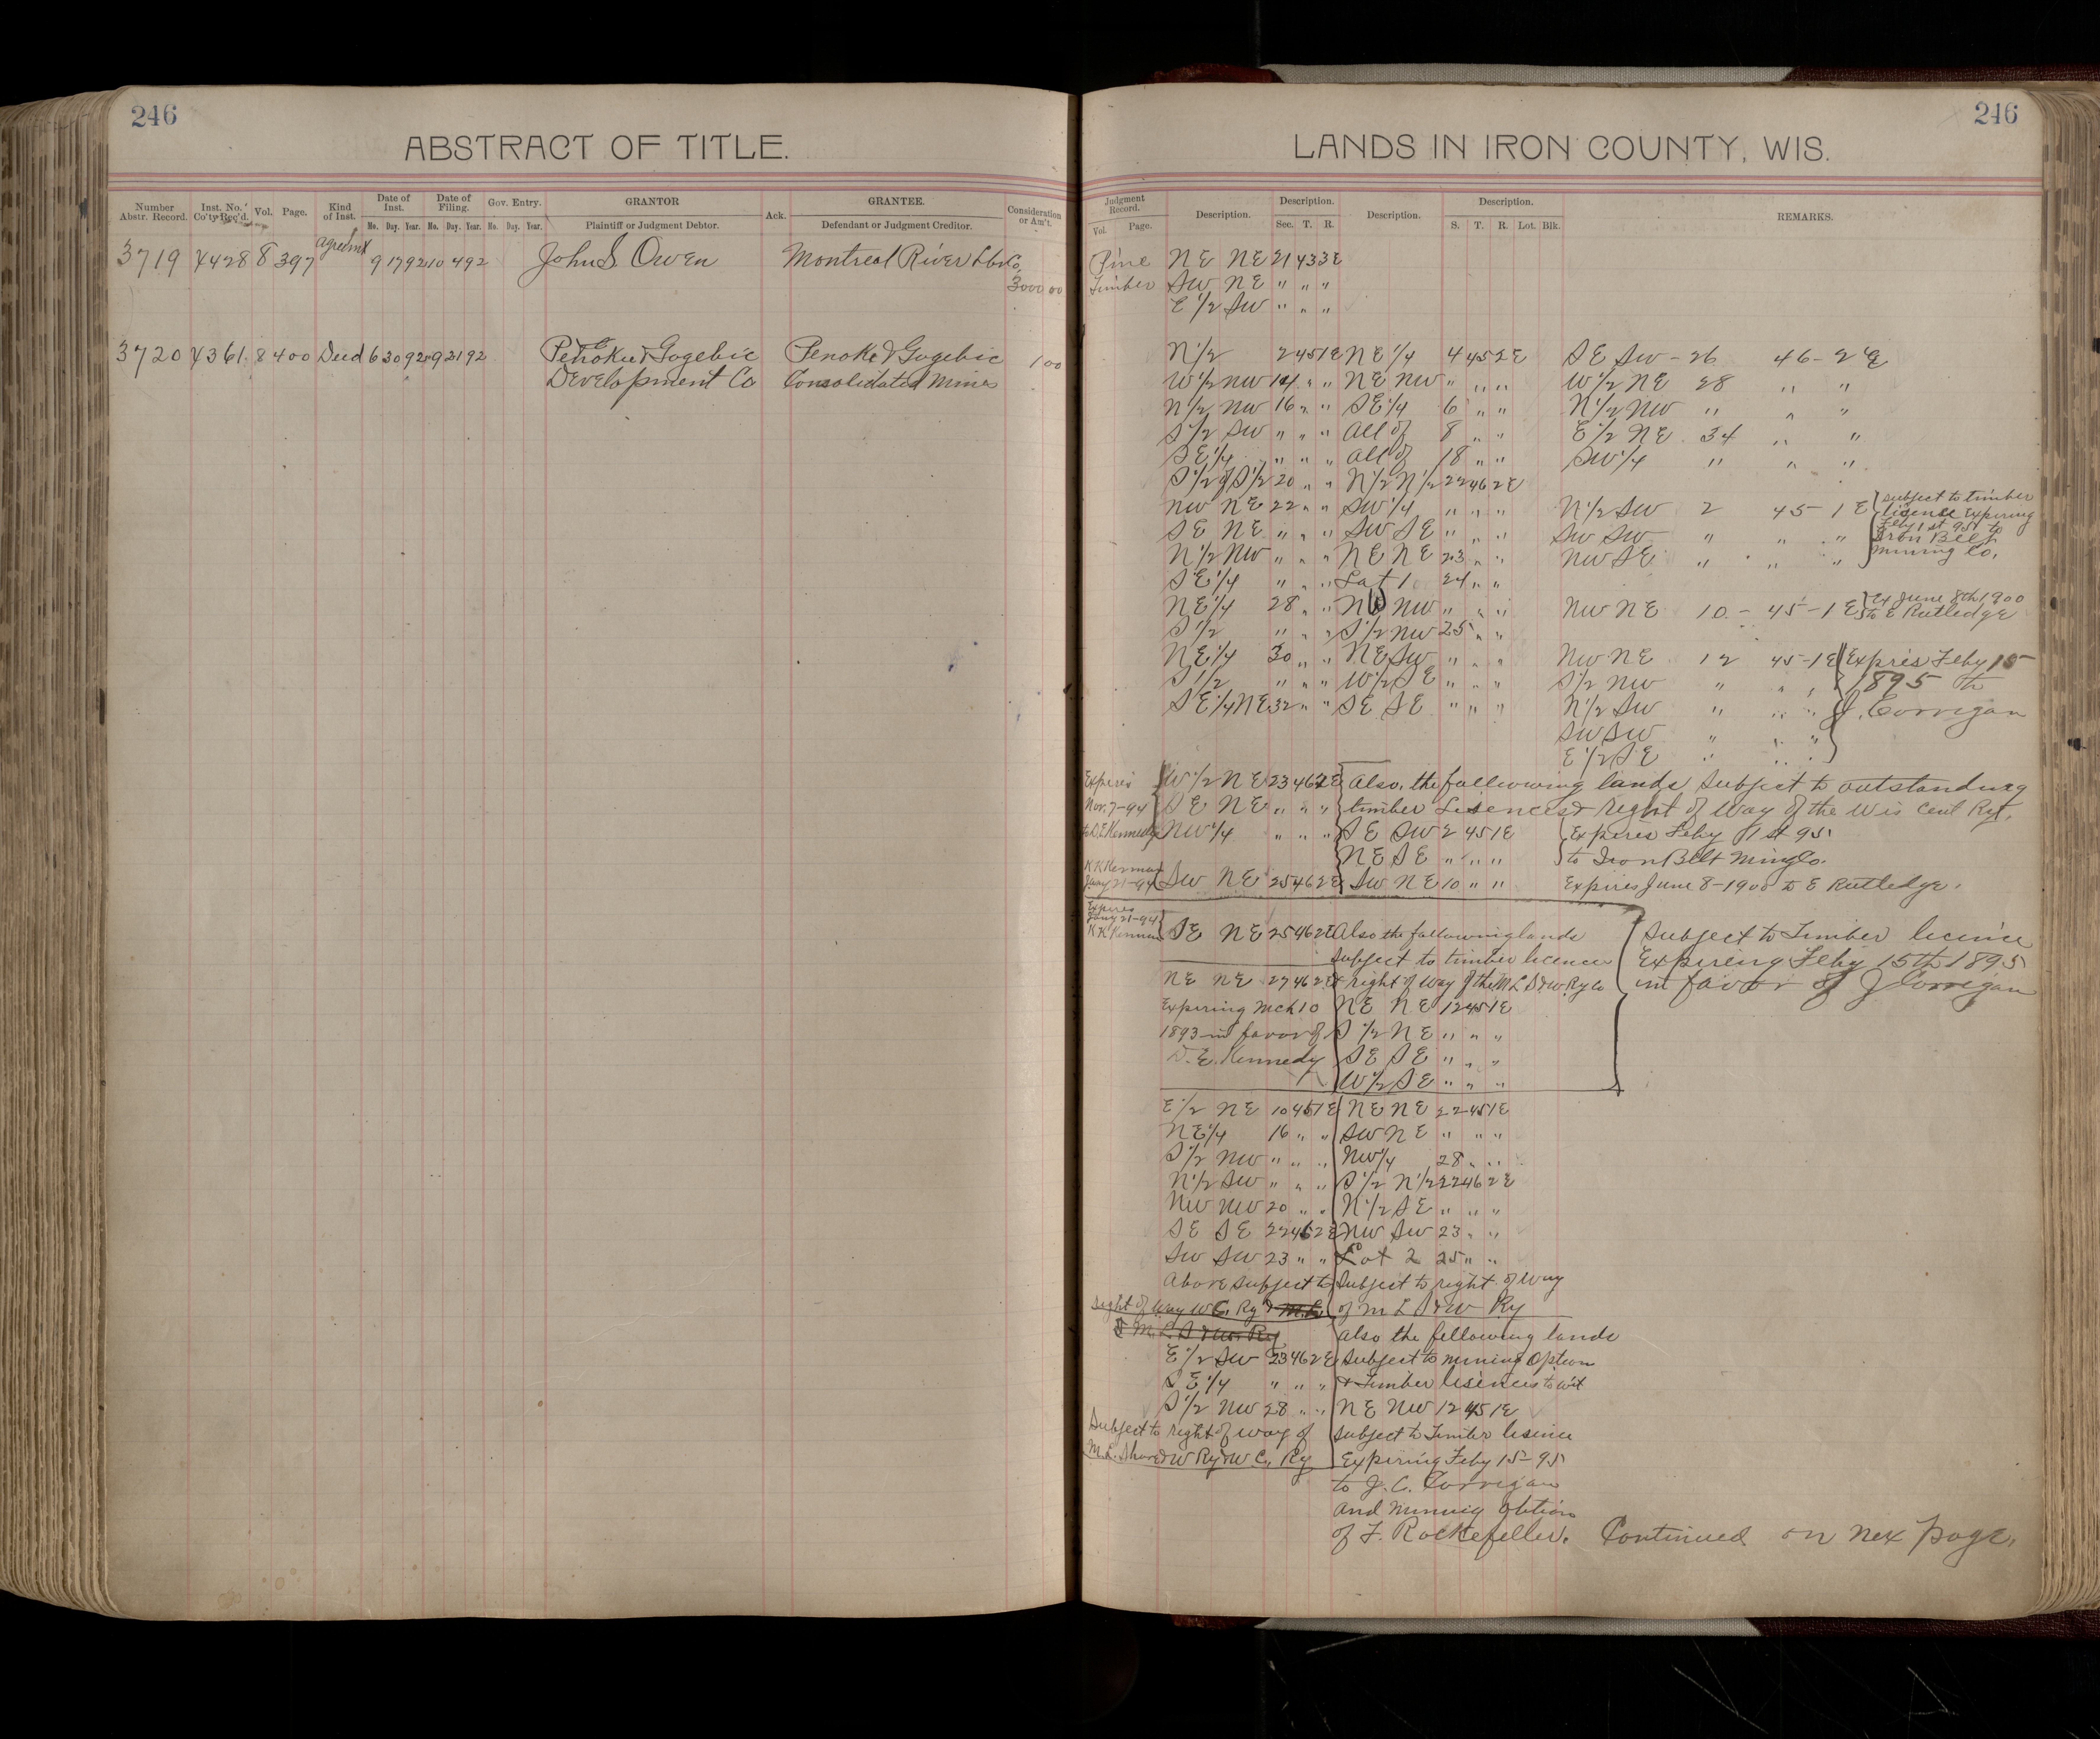 246
ABSTRACT OF TITLE.
Number Abstr. Record. Inst. No. Co'ty Rec'd. Vol. Page. Kind of Inst. Date of Inst. Date of Filing. Gov. Entry. GRANTOR Ack. GRANTEE. Consideration or Am't.
Mo. Day. Year. Mo. Day. Year. Mo. Day. Year. Plaintiff or Judgment Debtor. Defendant or Judgment Creditor.
3719 4428 8 397 Agreemt 9 17 92 10 4 92 John S. Owen Montreal River Lbr Co.
3000 00
3720 4361 8 400 Deed 6 30 92 9 21 92 Penokee & Gogebic Penoke & Gogebic 1 00
Development Co Consolidated Mines
246
LANDS IN IRON COUNTY, WIS.
Judgment Record. Description. Description. Description. Description. REMARKS.
Vol. Page. Sec. T. R. S. T. R. Lot. Blk.
Pine NE NE 21 43 3E
Timber SW NE " " "
E 1/2 SW " " "
N 1/2 2 45 1E NE 1/4 4 45 2E SE SW - 26 46 - 2 E
W 1/2 NW 14 " " NE NW " " " W 1/2 NE 28 " "
N 1/2 NW 16 " " SE 1/4 6 " " N 1/2 NW " " "
S 1/2 SW " " " All of 8 " " E 1/2 NE 34 " "
SE 1/4 " " " All of 18 " " SW 1/4 " " "
S 1/2 of S 1/2 20 " " N 1/2 N 1/2 22 46 2E
NW NE 22 " " SW 1/4 " " " N 1/2 SW 2 45 - 1 E Subject to timber
SE NE " " " SW SE " " " SW SW " " " licence Expiring
N 1/2 NW " " " NE NE 23 " " NW SE " " " Feby 1st 95 to
Iron Belt
Mining Co.
SE 1/4 " " " Lot 1 24 " "
NE 1/4 28 " " NW NW " " " NW NE 10 - 45 - 1 E Ex June 8th 1900
S 1/2 " " " S 1/2 NW 25 " " to E Rutledge
NE 1/4 30 " " NE SW " " " NW NE 12 45-1E Expires Feby 15
S 1/2 " " " W 1/2 SE " " " S 1/2 NW " " " 1895 to
SE 1/4 NE 32 " " SE SE " " " N 1/2 SW " " " J. Corrigan
SW SW " " "
E 1/2 SE " " "
Expires W 1/2 NE 23 46 2E Also, the following lands subject to outstanding
Nov. 7-94 SE NE " " " timber Lisences & right of Way of the Wis Cent Ry.
to D. E. Kennedy NW 1/4 " " " SE SW 2 45 1E Expires Feby 1st 95
NE SE " " " to Iron Belt Ming Co.
K K Kennan
Jany 21-94 SW NE 25 46 2E SW NE 10 " " Expires June 8-1900 to E Rutledge.
Expires
Jany 21-94
K K Kennan SE NE 25 46 2E Also the following lands Subject to Timber licence
subject to timber licence Expireing Feby 15th 1895
NE NE 27 46 2E & right of Way of the M L S & W Ry Co in favor of J Corrigan
Expering Mch 10 NE NE 12 45 1E
1893 in favor of S 1/2 NE " " "
D. E. Kennedy SE SE " " "
W 1/2 SE " " "
E 1/2 NE 10 45 1E NE NE 22 45 1E
NE 1/4 16 " " SW NE " " "
S 1/2 NW " " " NW 1/4 28 " "
N 1/2 SW " " " S 1/2 N 1/2 22 46 2E
NW NW 20 " " N 1/2 SE " " "
SE SE 22 46 2E NW SW 23 " "
SW SW 23 " " Lot 2 25 " "
Above subject to Subject to right of Way
right of Way W C. Ry & M. L. of M L S & W Ry
& M. L. S & W. Ry also the following lands
E 1/2 SW 23 46 2E subject to mining Option
SE 1/4 " " " & Timber lisences to wit
S 1/2 NW 28 " " NE NW 12 45 1E
Subject to right of way of subject to Timber lisence
M. L. Shore & W Ry & W C. Ry Expiring Feby 15-95
to J. C. Corrigan
and Mining Option
of F. Rockefeller. Continued on nex page.